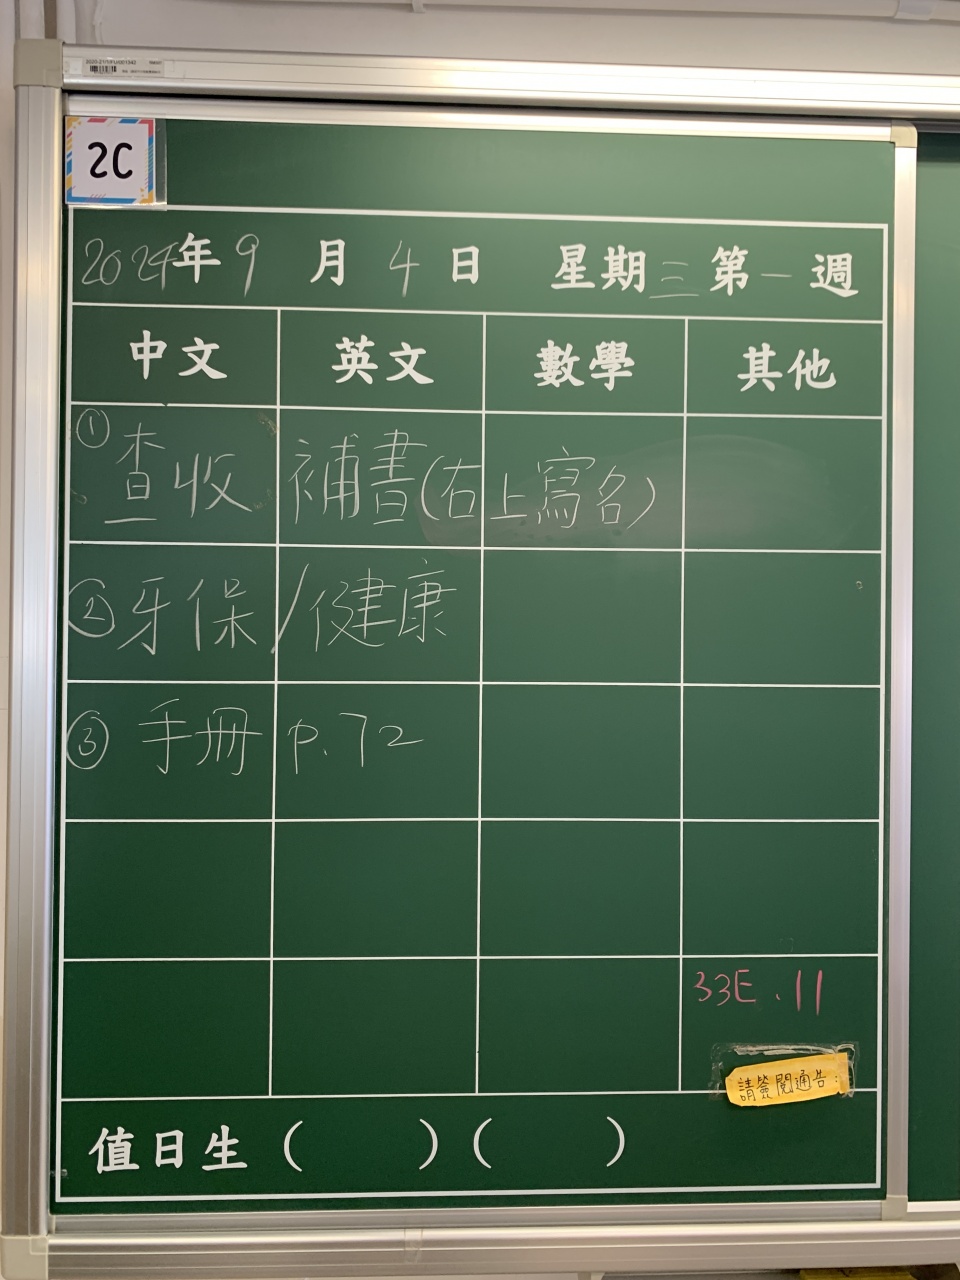 2C
2024年9月4日 星期三 第一週
中文 英文 數學 其他
① 查收補書(右上寫名)
② 牙保/健康
③ 手冊 p.72
33E.11
請簽閱通告:
值日生( )( )